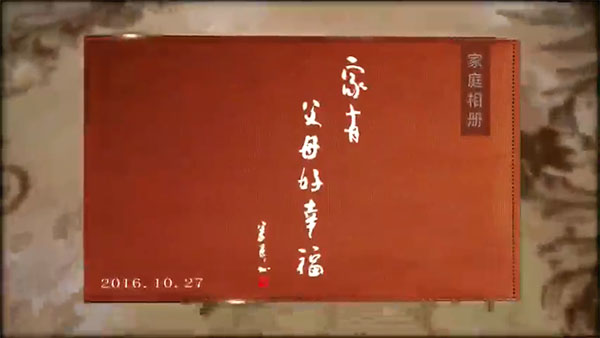 家庭相册
家有
父母好幸福
2016.10.27